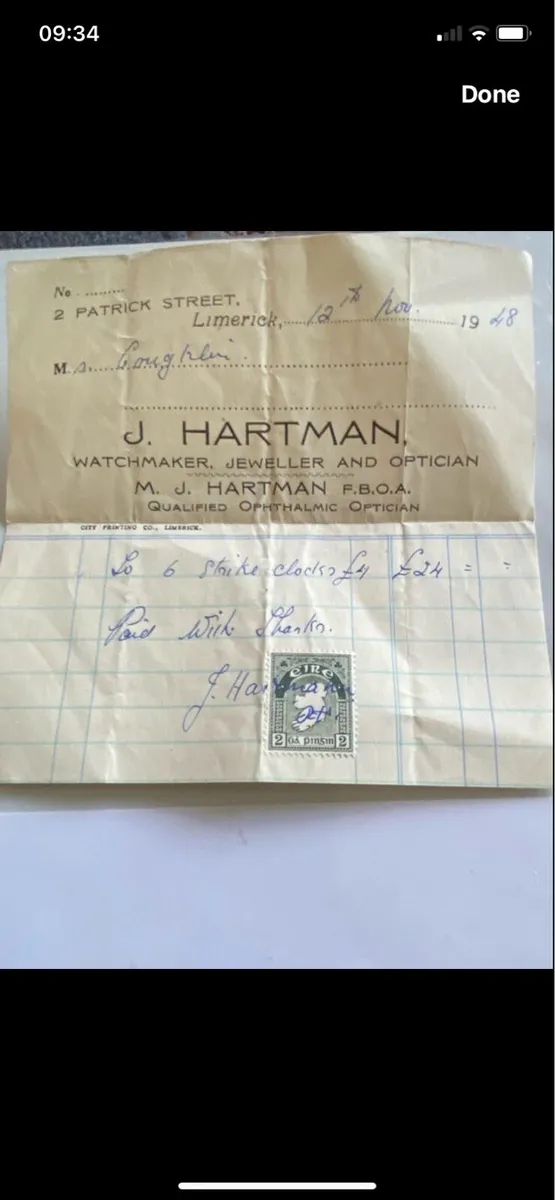 09:34
Done
No.
2 PATRICK STREET,
Limerick, 12th Nov. 1948
M
J. HARTMAN,
WATCHMAKER, JEWELLER AND OPTICIAN
M. J. HARTMAN F.B.O.A.
QUALIFIED OPHTHALMIC OPTICIAN
CITY PRINTING CO., LIMERICK.
To 6 Strike clocks £4 £24 = =
Paid With Thanks.
J. Hartmann
EIRE
2 Dá pingin 2